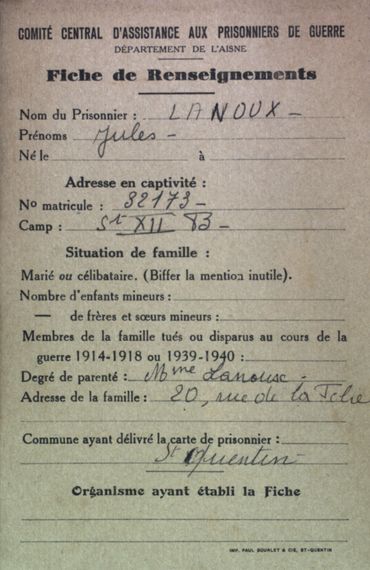 COMITÉ CENTRAL D'ASSISTANCE AUX PRISONNIERS DE GUERRE
DÉPARTEMENT DE L'AISNE
Fiche de Renseignements
Nom du Prisonnier : LANOUX -
Prénoms Jules -
Né le à
Adresse en captivité :
No matricule : 32173 -
Camp : St XII B3 -
Situation de famille :
Marié ou célibataire. (Biffer la mention inutile).
Nombre d'enfants mineurs :
— de frères et sœurs mineurs :
Membres de la famille tués ou disparus au cours de la
guerre 1914-1918 ou 1939-1940 :
Degré de parenté : Mme Lanoux -
Adresse de la famille : 20, rue de la
Commune ayant délivré la carte de prisonnier :
St Quentin
Organisme ayant établi la Fiche
IMP. PAUL BOURLET & CIE, ST-QUENTIN